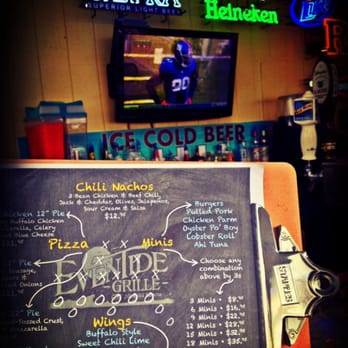 SUPERIOR LIGHT BEER
Heineken
20
ICE COLD BEER
Chili Nachos
3 Bean Chicken & Beef Chili,
Jack & Cheddar, Olives, Jalapeños,
Sour Cream & Salsa
$12.
Chicken 12" Pie
Buffalo Chicken
Celery
Blue Cheese
$11.
Pizza
Minis
Burgers
Pulled Pork
Chicken Parm
Oyster Po' Boy
Lobster Roll
Ahi Tuna
Choose any
combination
above by 3s
12" Pie
Sausage,
Onions
$11.
EVENTIDE
GRILLE
12" Pie
Crust,
Mozzarella
Wings
Buffalo Style
Sweet Chili Lime
3 Minis • $8.
6 Minis • $16.
9 Minis • $22.
12 Minis • $28.
15 Minis • $32.
18 Minis • $35.
STAPLES